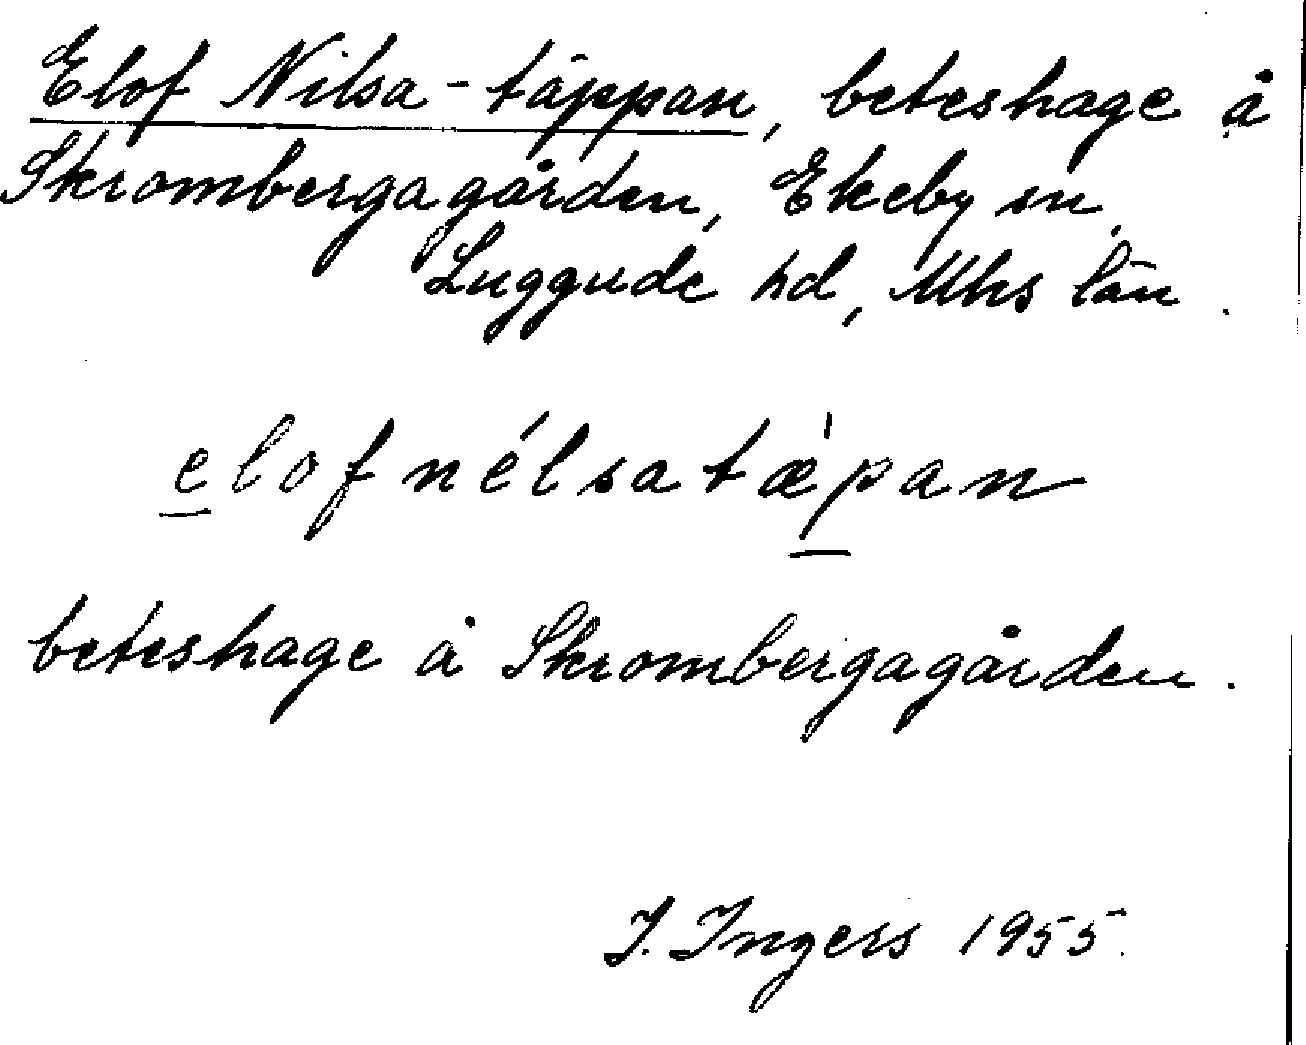 Elof Nilsa-täppan, beteshage å
Skrombergagården, Ekeby sn,
Luggude hd, Mhs län.
elofnélsatæ̀pan
beteshage å Skrombergagården.
I. Ingers 1955.